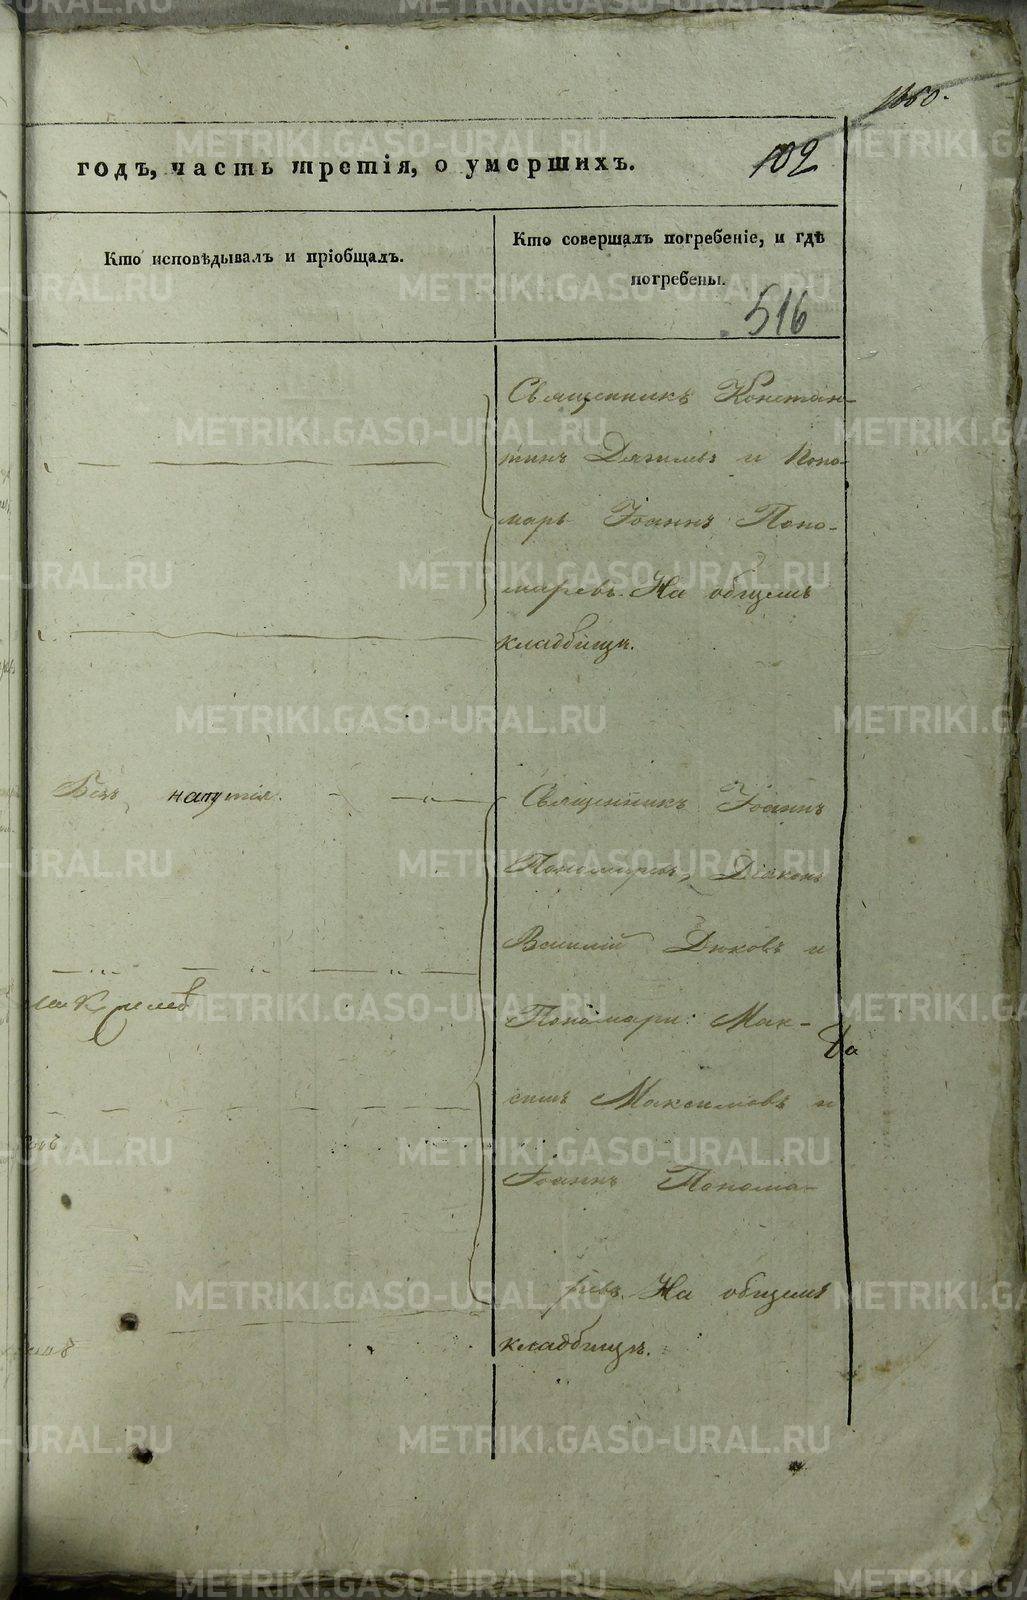 1660.
годъ, часть третія, о умершихъ.
102
Кто исповѣдывалъ и пріобщалъ.
Кто совершалъ погребеніе, и гдѣ
погребены.
516
Священникъ Констан-
тинъ и Поно-
марь Іоаннъ Поно-
маревъ. На общемъ
кладбищѣ.
Безъ напутія.
Священникъ Іоаннъ
Пономаревъ, Діаконъ
Василій Дюковъ и
Пономари: Мак-
симъ Максимовъ и
Іоаннъ Понома-
ревъ. На общемъ
кладбищѣ.
METRIKI.GASO-URAL.RU